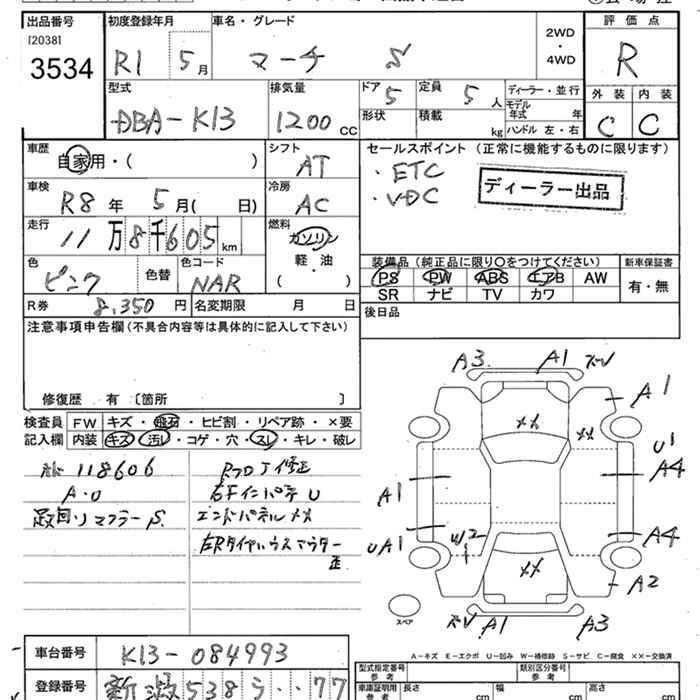 出品番号 初度登録年月 車名・グレード 評価点
[2038]
3534
R1 5月 マーチ S
2WD・4WD
R
型式 排気量 ドア 定員 ディーラー・並行 外装 内装
DBA-K13 1200cc 5 5人 モデル年式 年 C C
形状 積載 kg ハンドル 左・右
車歴 シフト セールスポイント (正常に機能するものに限ります)
自家用・( ) AT
・ETC
・VDC
ディーラー出品
車検 冷房
R8年 5月( 日) AC
走行 燃料
11万8千605km ガソリン
軽・油
( )
色 色替 色コード
ピンク NAR
装備品 (純正品に限り○をつけてください) 新車保証書
PS PW ABS エアB AW 有・無
SR ナビ TV カワ
R券 8,350円 名変期限 月 日
後日品
注意事項申告欄 (不具合内容等は具体的に記入して下さい)
修復歴 有 〔箇所 〕
検査員 FW キズ・飛石・ヒビ割・リペア跡・×要
記入欄 内装 キズ・汚レ・コゲ・穴・スレ・キレ・破レ
118606
A・U
マフラーS.
右Fインパネ U
エンドパネル XX
A3 A1
A1
XX XX
U1
A4
A1
A4
UA1 W2
XX
A2
A1 A3
スペア
A-キズ E-エクボ U-凹み W-補修跡 S-サビ C-腐食 XX-交換済
車台番号 K13-084993
型式指定番号 参考 類別区分番号 参考
登録番号 新潟538 う ・・77
車庫証明用 参考 長さ cm 幅 cm 高さ cm